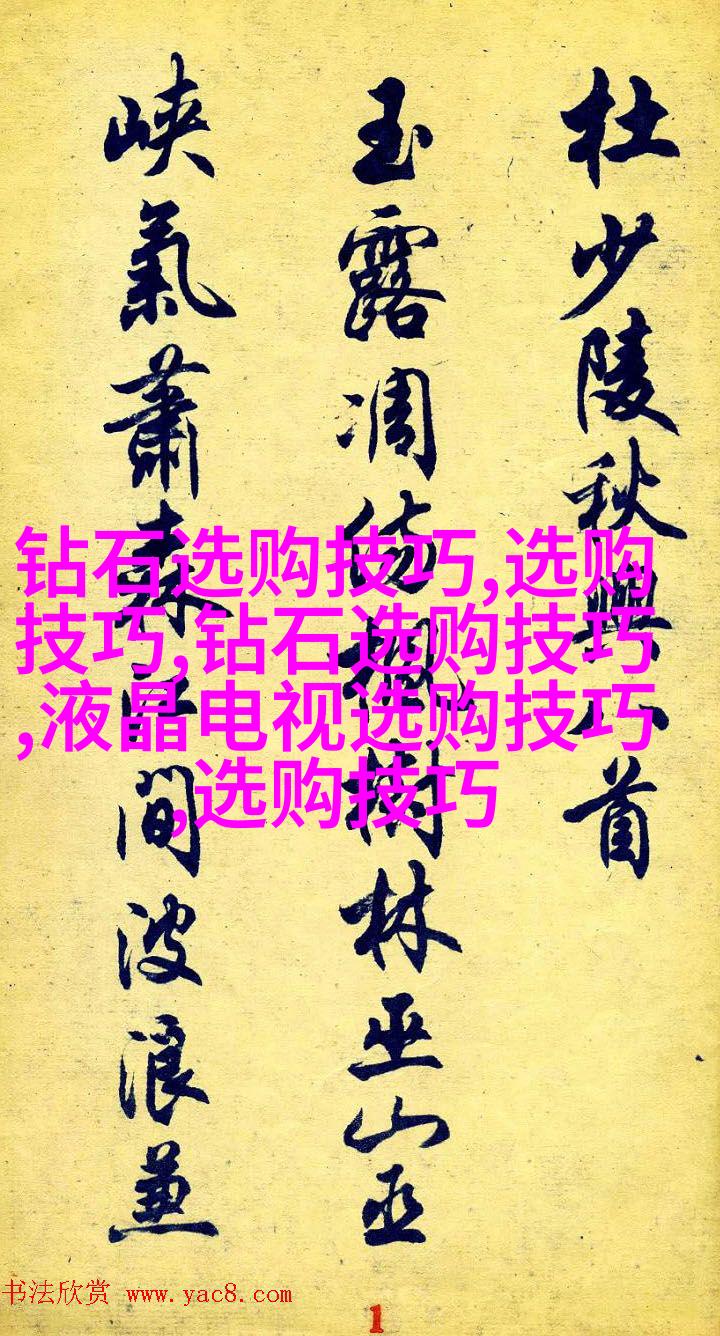 杜少陵秋興八首
玉露凋傷楓樹林巫山巫
峽氣蕭森江間波浪兼
钻石选购技巧,选购
技巧,钻石选购技巧
,液晶电视选购技巧
,选购技巧
书法欣赏 www.yac8.com
1